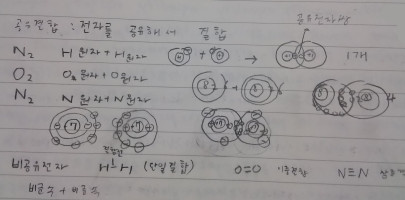 공유결합 : 전자를 공유해서 결합
공유전자쌍
N₂ H원자 + H원자 → 1개
O₂ O원자 + O원자
N₂ N원자 + N원자
+7 +7 +7 +7
비공유전자 H-H (단일결합) O=O 이중결합 N≡N
비금속 + 비금속